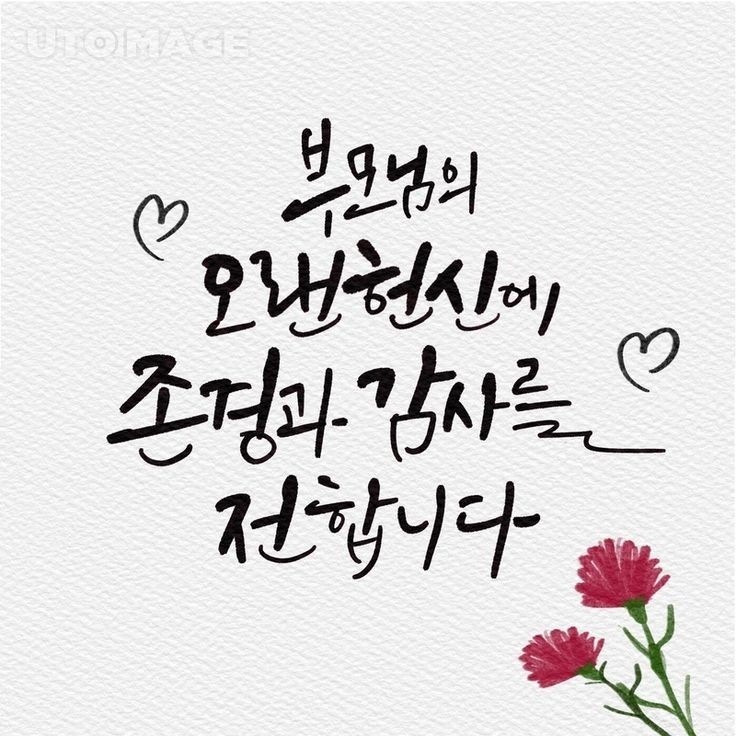 UTOIMAGE
부모님의
오랜헌신에
존경과 감사를
전합니다